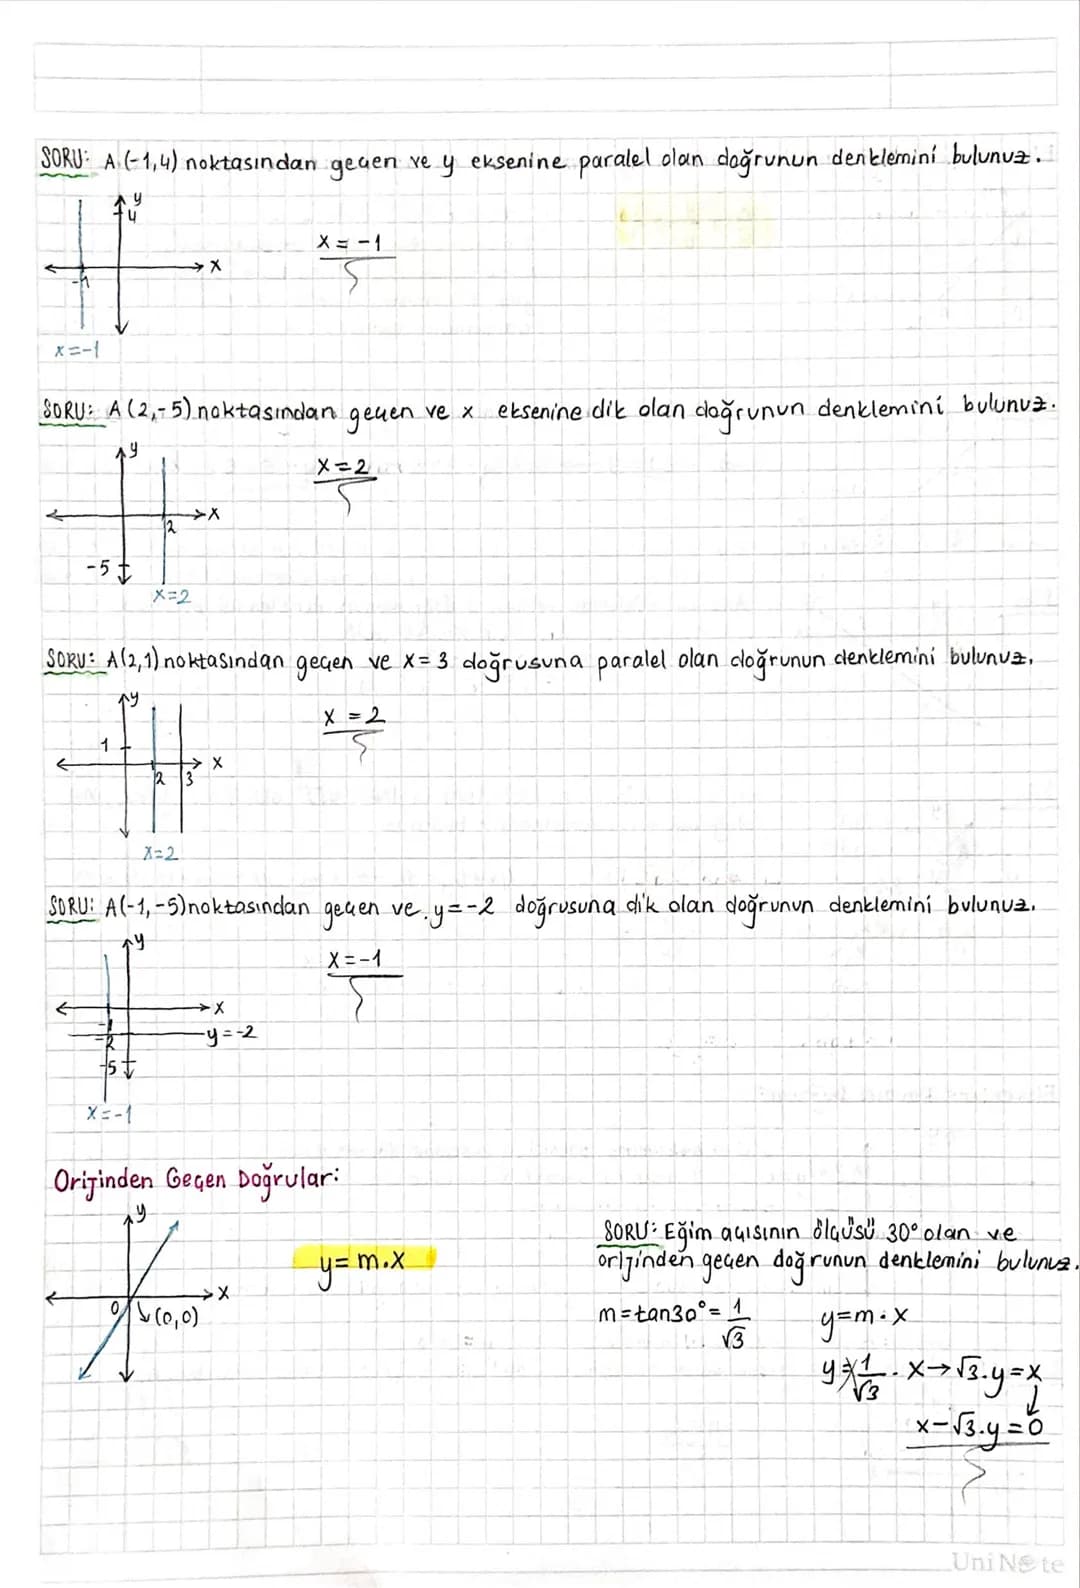 SORU: A(-1,4) noktasından geçen ve y eksenine paralel olan doğrunun denklemini bulunuz.
y
4
x = -1
x
-1
x=-1
SORU: A(2,-5) noktasından geçen ve x eksenine dik olan doğrunun denklemini bulunuz.
y
x=2
x
2
-5
x=2
SORU: A(2,1) noktasından geçen ve x=3 doğrusuna paralel olan doğrunun denklemini bulunuz.
y
x = 2
1
x
2 3
x=2
SORU: A(-1,-5) noktasından geçen ve y=-2 doğrusuna dik olan doğrunun denklemini bulunuz.
y
x=-1
x
-1
-2
y=-2
-5
x=-1
Orijinden Geçen Doğrular:
y
y=m.x
x
0
(0,0)
SORU: Eğim açısının ölçüsü 30° olan ve
orijinden geçen doğrunun denklemini bulunuz.
m=tan30°= 1/√3
y=m.x
y=1/√3 . x→√3.y=x
x-√3.y=0
UniNote